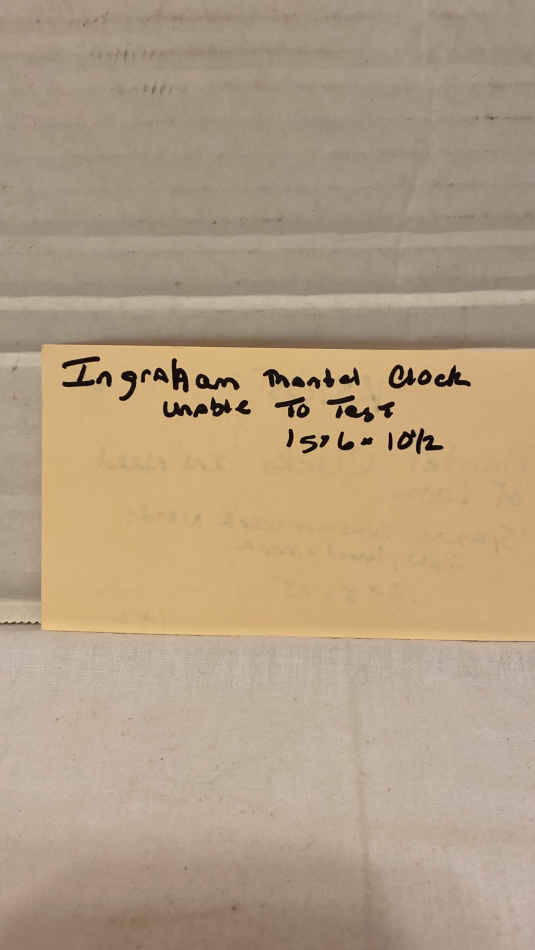 Ingraham Mantel Clock
Unable To Test
15 x 6 x 10 1/2